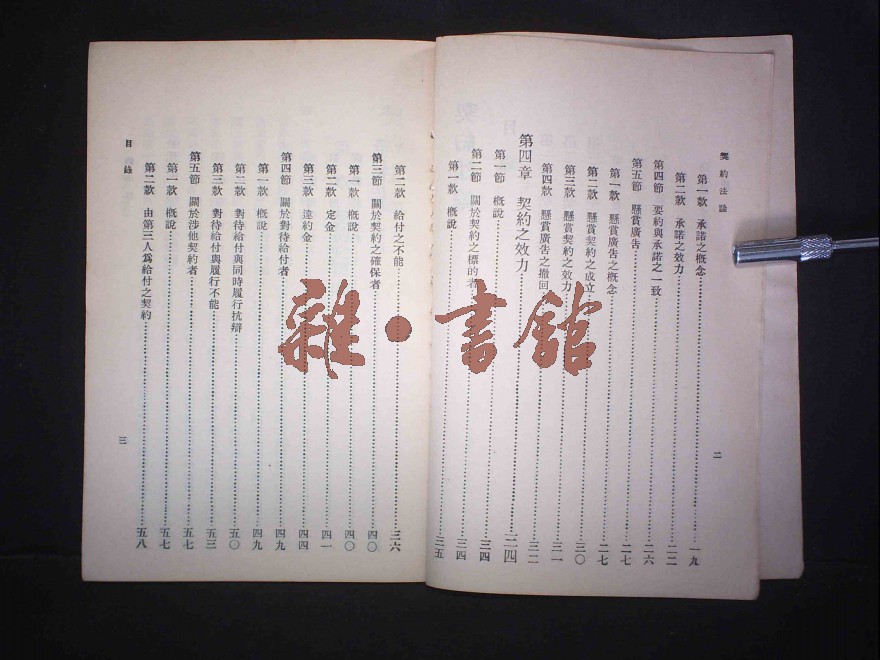 契約法論
第一款 承諾之概念…一九
第二款 承諾之效力…二二
第四節 要約與承諾之一致…二六
第五節 懸賞廣告…二七
第一款 懸賞廣告之概念…二七
第二款 懸賞契約之成立…三〇
第三款 懸賞契約之效力…三一
第四款 懸賞廣告之撤回…三二
第四章 契約之效力…三四
第一節 概說…三四
第二節 關於契約之標的者…三四
第一款 概說…三五
二
第二款 給付之不能…三六
第三節 關於契約之確保者…四〇
第一款 概說…四〇
第二款 定金…四一
第三款 違約金…四四
第四節 關於對待給付者…四九
第一款 概說…四九
第二款 對待給付與同時履行抗辯…五〇
第三款 對待給付與履行不能…五三
第五節 關於涉他契約者…五七
第一款 概說…五七
第二款 由第三人爲給付之契約…五八
目錄
三
雜·書館